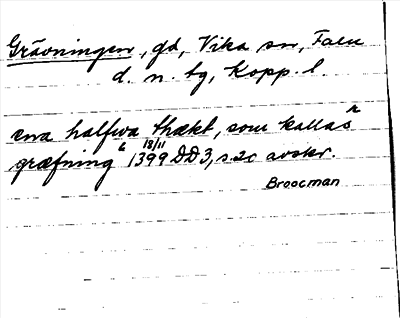 Grävningen, gd, Vika sn, Falu
d. n. tg, Kopp. l.
ena halfwa thækt, som kallas
græfning 18/11 1399 DD3, s. 20 avskr.
Broocman